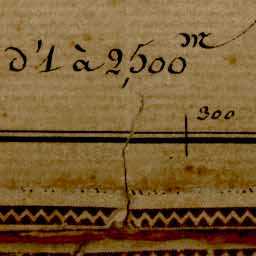 d'1 à 2,500m
300